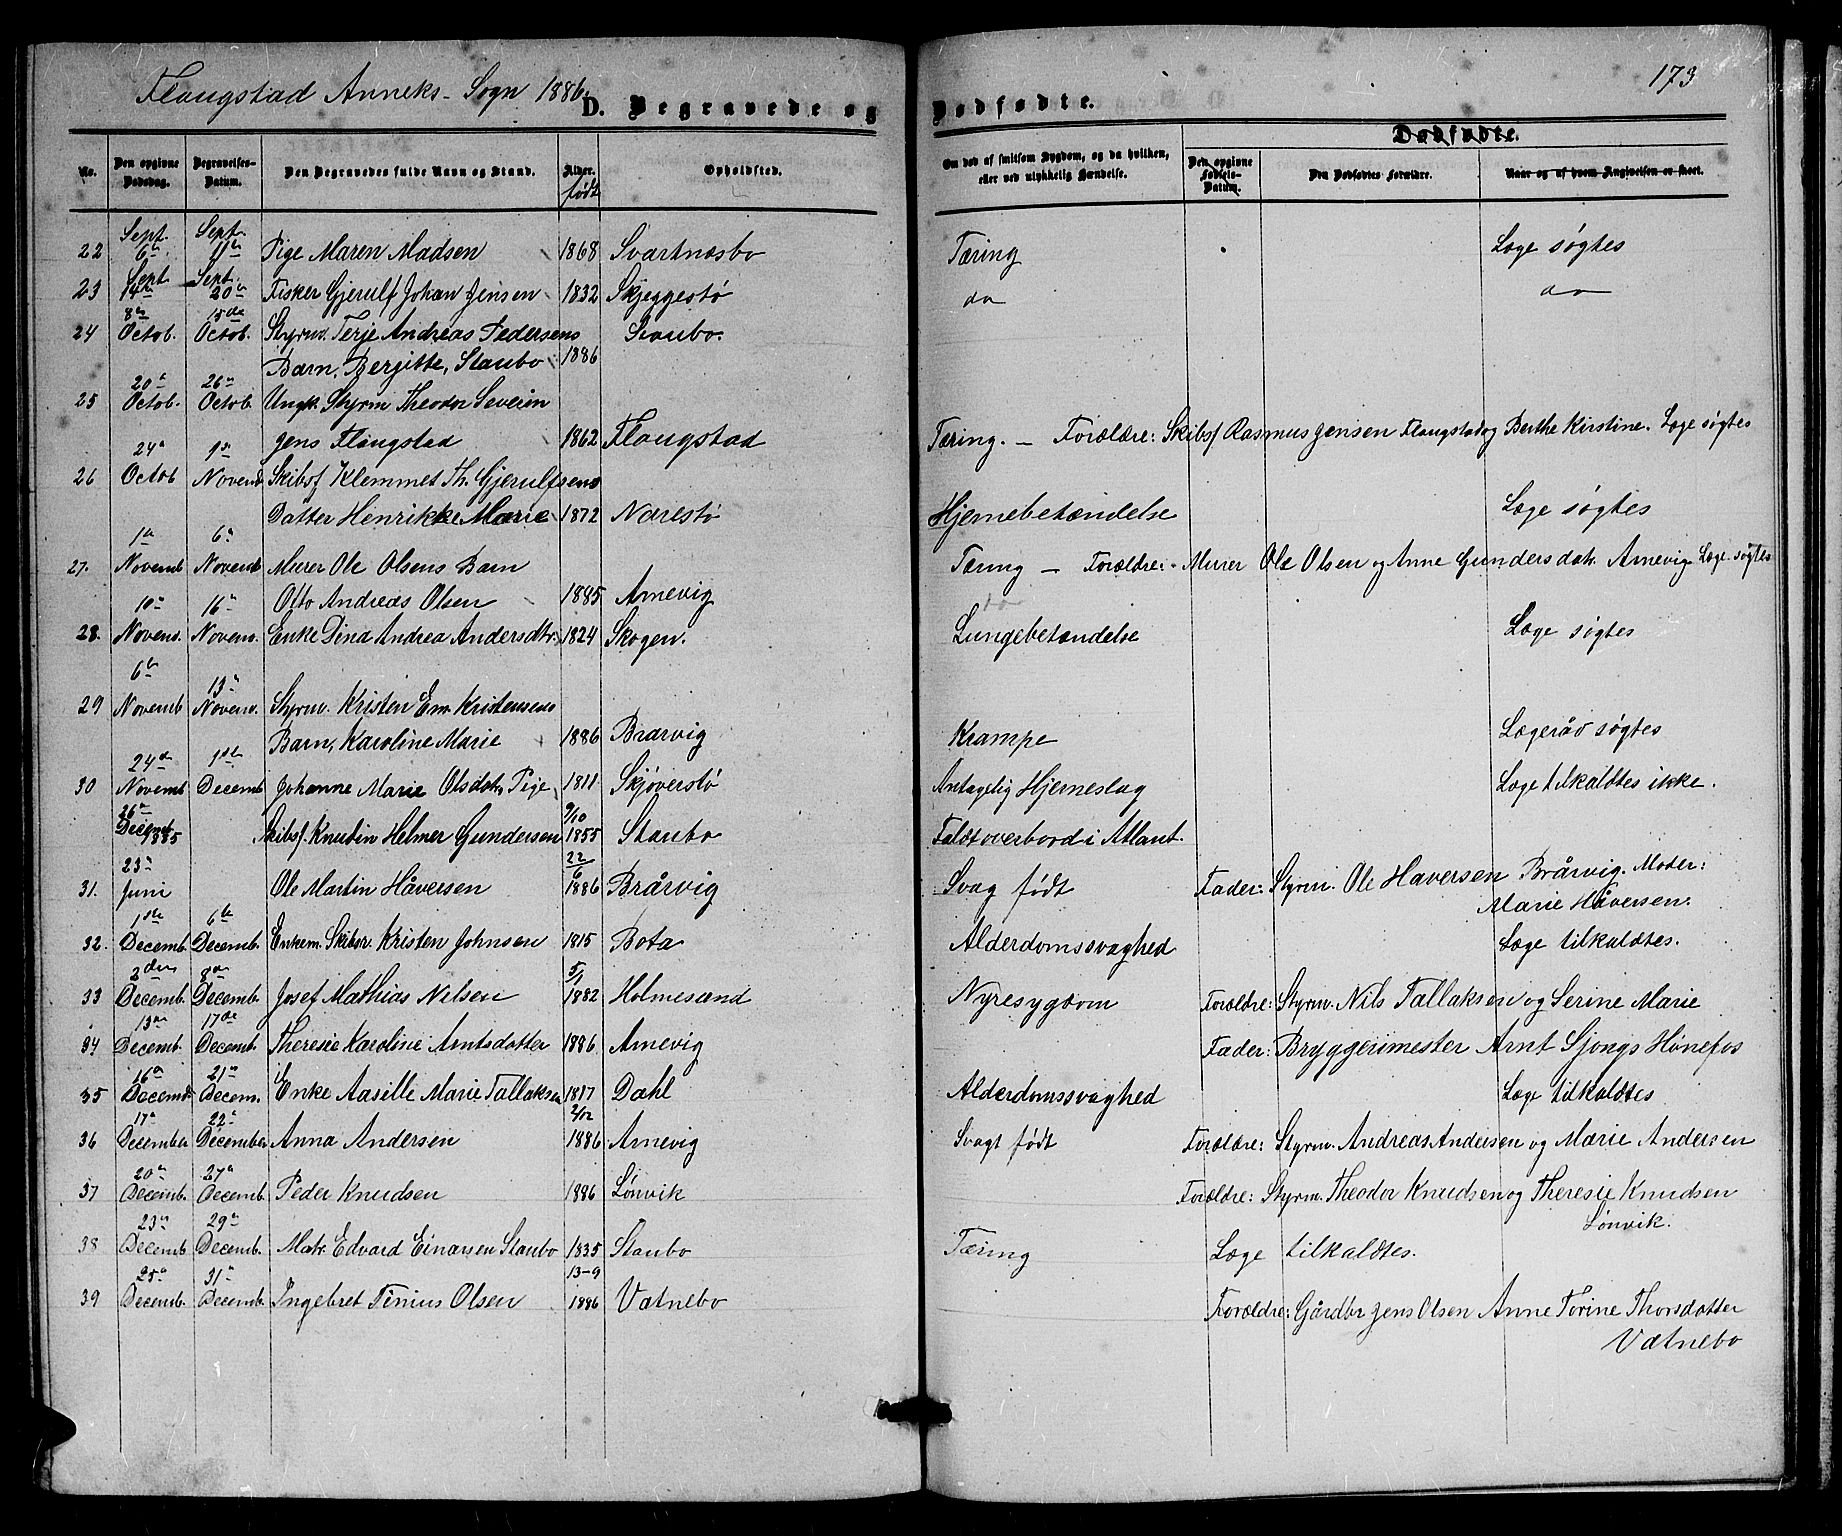 Flaugstad Anneks-Sogn 1886.
173
D. Begravede og Dødfødte.
Dødfødte.
No.
Den opgivne Dødsdag.
Begravelses-Datum.
Den Begravedes fulde Navn og Stand.
Alder.
født
Opholdsted.
Om død af smitsom Sygdom, og da hvilken,
eller ved ulykkelig Hændelse.
Den opgivne Fødsels-Datum.
Den Dødfødtes Forældre.
Naar og af hvem Angivelsen er skeet.
22 Sept. 6te Sept. 11te Pige Maren Madsen 1868 Svartnæsbo Tæring Læge søgtes
23 Sept 14de Sept. 20de Fisker Gjerulf Johan Jensen 1832 Skjeggestø do do
24 8de Octob. 15de Octob. Styrm. Terje Andreas Pedersens Staubo.
Barn, Bergitte, Staubo 1886
25 20de Octob. 26de Octob. Ungk. Styrm Theodor Severin
Jens Flaugstad 1862 Flaugstad Tæring. — Forældre: Skibsf Rasmus Jensen Flaugstad og Berthe Kirstine. Læge søgtes
26 24de Octob 1ste Novemb Skibsf Klemmet Th. Gjerulfsens
Datter Henrikke Marie 1872 Narestø Hjernebetændelse Læge søgtes
27. 1ste Novemb 6te Novemb Murer Ole Olsens Barn Tæring — Forældre: Murer Ole Olsen og Anne Gundersdatr. Arnevig Læge søgtes
Otto Andreas Olsen 1885 Arnevig
28. 10de Novem. 16de Novem. Enke Dina Andrea Andersdtr. 1824 Skogen. Lungebetændelse Læge søgtes
29 6te Novemb 13de Novem. Styrm. Kristen Em. Kristensens
Barn, Karoline Marie 1886 Brærvig Krampe Lægeråd søgtes
30 24de Novemb 1ste Decemb Johanne Marie Olsdatr, Pige 1811 Skjøverstø Antagelig Hjerneslag Læge tilkaldtes ikke.
26de Decemb 1885 Skibsf. Knudin Helmer Gundersen 9/10 1855 Staubo Faldt overbord i Atlant.
31. 23de Juni Ole Martin Håversen 22/6 1886 Brårvig Svag født Fader: Styrm. Ole Haversen Brårvig. Moder:
Marie Håversen.
32. 1ste Decemb. 6te Decemb. Enkem. Skibsr. Kristen Johnsen 1815 Bota Alderdomssvaghed Læge tilkaldtes.
33 2den Decemb. 8de Decemb. Josef Mathias Nilsen 5/1 1882 Holmesand Nyresygdom Forældre: Styrm. Nils Tallaksen og Serine Marie
34 13de Decemb. 17de Decemb. Theresie Karoline Arntsdatter 1886 Arnevig Fader: Bryggerimester Arnt Sjongs Hønefos
35 16de Decemb 21de Decem. Enke Aasille Marie Tallaksen 1817 Dahl Alderdomssvaghed Læge tilkaldtes
36 17de December 22de December Anna Andersen 2/12 1886 Arnevig Svagt født Forældre: Styrm. Andreas Andersen og Marie Andersen
37 20de Decemb. 27de Decemb. Peder Knudsen 1886 Lønvik Forældre: Styrm. Theodor Knudsen og Theresie Knudsen
Lønvik.
38 23de Decemb 29de Decemb. Matr. Edvard Einarsen Staubo 1835 Staubo Tæring Læge tilkaldtes.
39 25de Decemb. 31te Decemb. Ingebret Tinius Olsen 13-9 1886 Vatnebo Forældre: Gårdbr Jens Olsen Anne Torine Thorsdatter
Vatnebo